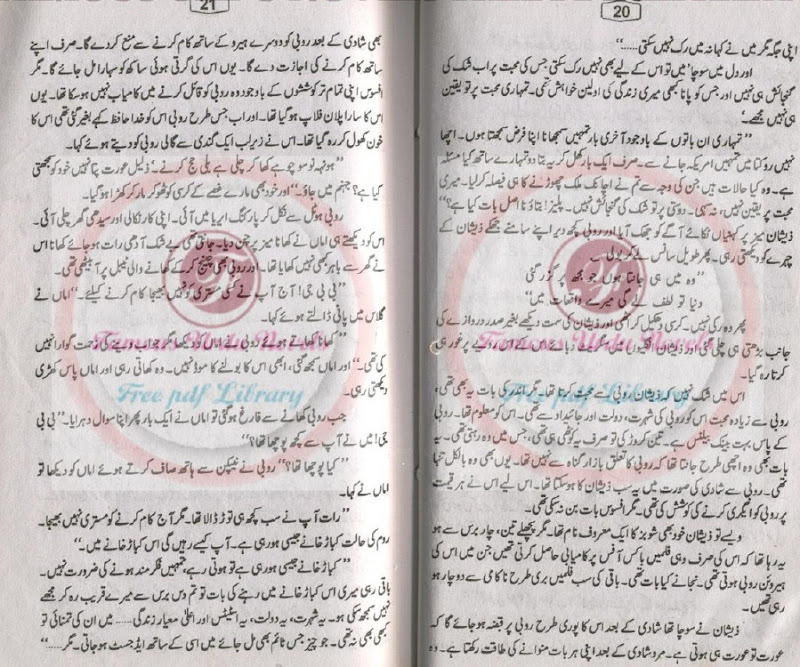 20
اپنی جگہ مگر میں نے کہا نہ میں رک نہیں سکتی......"
اور دل میں سوچا "میں تو اس کے لیے بھی نہیں رک سکتی جس کی محبت پر اب شک کی
گنجائش ہی نہیں اور جس کو پانا بھی میری زندگی کی اولین خواہش تھی۔ تمہاری محبت پر تو یقین
ہی نہیں مجھے۔"
"تمہاری ان باتوں کے باوجود آخری بار تمہیں سمجھانا اپنا فرض سمجھتا ہوں۔ اچھا
نہیں روکتا میں تمہیں امریکہ جانے سے۔ صرف ایک بار کھل کر یہ بتا دو تمہارے ساتھ کیا مسئلہ
ہے۔ وہ کیا حالات ہیں جن کی وجہ سے تم نے اچانک ملک چھوڑنے کا ہی فیصلہ کر لیا۔ میری
محبت پر یقین نہیں، نہ سہی۔ دوستی پر تو شک کی گنجائش نہیں۔ پلیز! بتاؤ نا اصل بات کیا ہے؟"
ذیشان میز پر کہنیاں ٹکائے آگے کو جھک آیا اور روبی کچھ دیر اپنے سامنے جھکے ذیشان کے
چہرے کو دیکھتی رہی۔ پھر طویل سانس لے کر بولی۔
"وہ میں ہی جانتا ہوں جو مجھ پر گزر گئی
دنیا تو لطف لے گی میرے واقعات میں"
پھر وہ رکی نہیں۔ کرسی دھکیل کر اٹھی اور ذیشان کی سمت دیکھے بغیر صدر دروازے کی
جانب بڑھتی ہی چلی گئی اور ذیشان
کرتا رہ گیا۔
اس میں شک نہیں کہ ذیشان روبی سے محبت کرتا تھا۔ مگر ایک دوسری بات یہ بھی تھی،
روبی سے زیادہ محبت اس کو روبی کی شہرت، دولت اور جائیداد سے تھی۔ اس کو معلوم تھا۔ روبی
کے پاس بہت بینک بیلنس ہے۔ تین کروڑ کی تو صرف یہ کوٹھی ہی تھی، جس میں وہ رہتی تھی۔ یہ
بات بھی وہ اچھی طرح جانتا تھا کہ روبی کا تعلق بازار گناہ سے نہیں تھا۔ یوں بھی وہ بالکل تنہا
تھی۔ روبی سے شادی کی صورت میں یہ سب ذیشان کا ہو سکتا تھا۔ اس لیے اس نے ہر قیمت
پر روبی کو ایگری کرنے کی کوشش کی تھی۔ مگر افسوس بات بن نہ سکی تھی۔
ویسے تو ذیشان خود بھی شوبز کا ایک معروف نام تھا۔ مگر پچھلے تین، چار برس سے ہو
یہ رہا تھا کہ اس کی صرف وہی فلمیں باکس آفس پر کامیابی حاصل کرتی تھیں جن میں اس کی
ہیروئن روبی ہوتی تھی۔ نجانے کیا بات تھی۔ باقی کی سب فلمیں بری طرح ناکامی سے دوچار ہو
رہی تھیں۔
ذیشان نے سوچا تھا شادی کے بعد اس کا پوری طرح روبی پر قبضہ ہو جائے گا کہ
عورت تو عورت ہی ہوتی ہے۔ مرد شادی کے بعد اپنی ہر بات منوانے کی طاقت رکھتا ہے۔ وہ
21
بھی شادی کے بعد روبی کو دوسرے ہیرو کے ساتھ کام کرنے سے منع کر دے گا۔ صرف اپنے
ساتھ کام کرنے کی اجازت دے گا۔ یوں اس کی گرتی ہوئی ساکھ کو سہارا مل جائے گا۔ مگر
افسوس اپنی تمام تر کوششوں کے باوجود وہ روبی کو قائل کرنے میں کامیاب نہیں ہو سکا تھا۔ یوں
اس کا سارا پلان فلاپ ہو گیا تھا۔ اور اب جس طرح روبی اس کو خدا حافظ کہے بغیر گئی تھی اس کا
خون کھول کر رہ گیا تھا۔ اس نے زیرلب ایک گندی سے گالی روبی کو دیتے ہوئے کہا۔
"ہونہہ نو سو چوہے کھا کر چلی ہے بلی حج کرنے۔ ذلیل عورت پتا نہیں خود کو سمجھتی
کیا ہے؟ جہنم میں جاؤ۔" اور خود بھی مارے غصے کے کرسی کو ٹھوکر مار کر کھڑا ہو گیا۔
روبی ہوٹل سے نکل کر پارکنگ ایریا میں آئی۔ اپنی کار نکالی اور سیدھی گھر چلی آئی۔
اس کو دیکھتے ہی اماں نے کھانا میز پر چن دیا۔ جانتی تھی بے شک آدھی رات ہو جائے کھانا اس
نے گھر سے باہر کبھی نہیں کھایا تھا۔ اور روبی بھی چینج کر کے کھانے والی ٹیبل پر آ بیٹھی تھی۔
"بی بی جی! آج آپ نے کسی مستری کو نہیں بھیجا کام کرنے کیلئے۔" اماں نے
گلاس میں پانی ڈالتے ہوئے کہا۔
کھانا کھاتے ہوئے روبی نے اماں کو دیکھا مگر جواب دینے کی زحمت گوارا نہیں
کی تھی۔" اور اماں سمجھ گئی، ابھی اس کا بولنے کا موڈ نہیں۔ وہ کھاتی رہی اور اماں پاس کھڑی
دیکھتی رہی۔
جب روبی کھانے سے فارغ ہو گئی تو اماں نے ایک بار پھر اپنا سوال دہرایا۔ "بی بی
جی! میں نے آپ سے کچھ پوچھا تھا؟"
"کیا پوچھا تھا؟" روبی نے نیپکن سے ہاتھ صاف کرتے ہوئے اماں کو دیکھا تو
اماں نے کہا۔
"رات آپ نے سب کچھ ہی توڑ ڈالا تھا۔ مگر آج کام کرنے کو مستری نہیں بھیجا۔
روم کی حالت کباڑ خانے جیسی ہو رہی ہے۔ آپ کیسے رہیں گی اس کباڑ خانے میں۔"
"کباڑ خانے جیسی ہو رہی ہے تو ہوتی رہے، تمہیں فکر مند ہونے کی ضرورت نہیں۔
باقی رہی میری اس کباڑ خانے میں رہنے کی بات تو تم دس برس سے میرے قریب رہ کر مجھے
نہیں سمجھ سکی ہو۔ یہ شہرت، یہ دولت، یہ اسٹیٹس اور اعلیٰ معیار زندگی...... میں ان کی تمنائی تو
کبھی بھی نہ تھی۔ جو چیز جس ٹائم بھی مل جائے میں اسی کے ساتھ ایڈجسٹ ہو جاتی۔ مگر......"
Famous Urdu Novels
Free pdf Library
Famous Urdu Novels
Free pdf Library